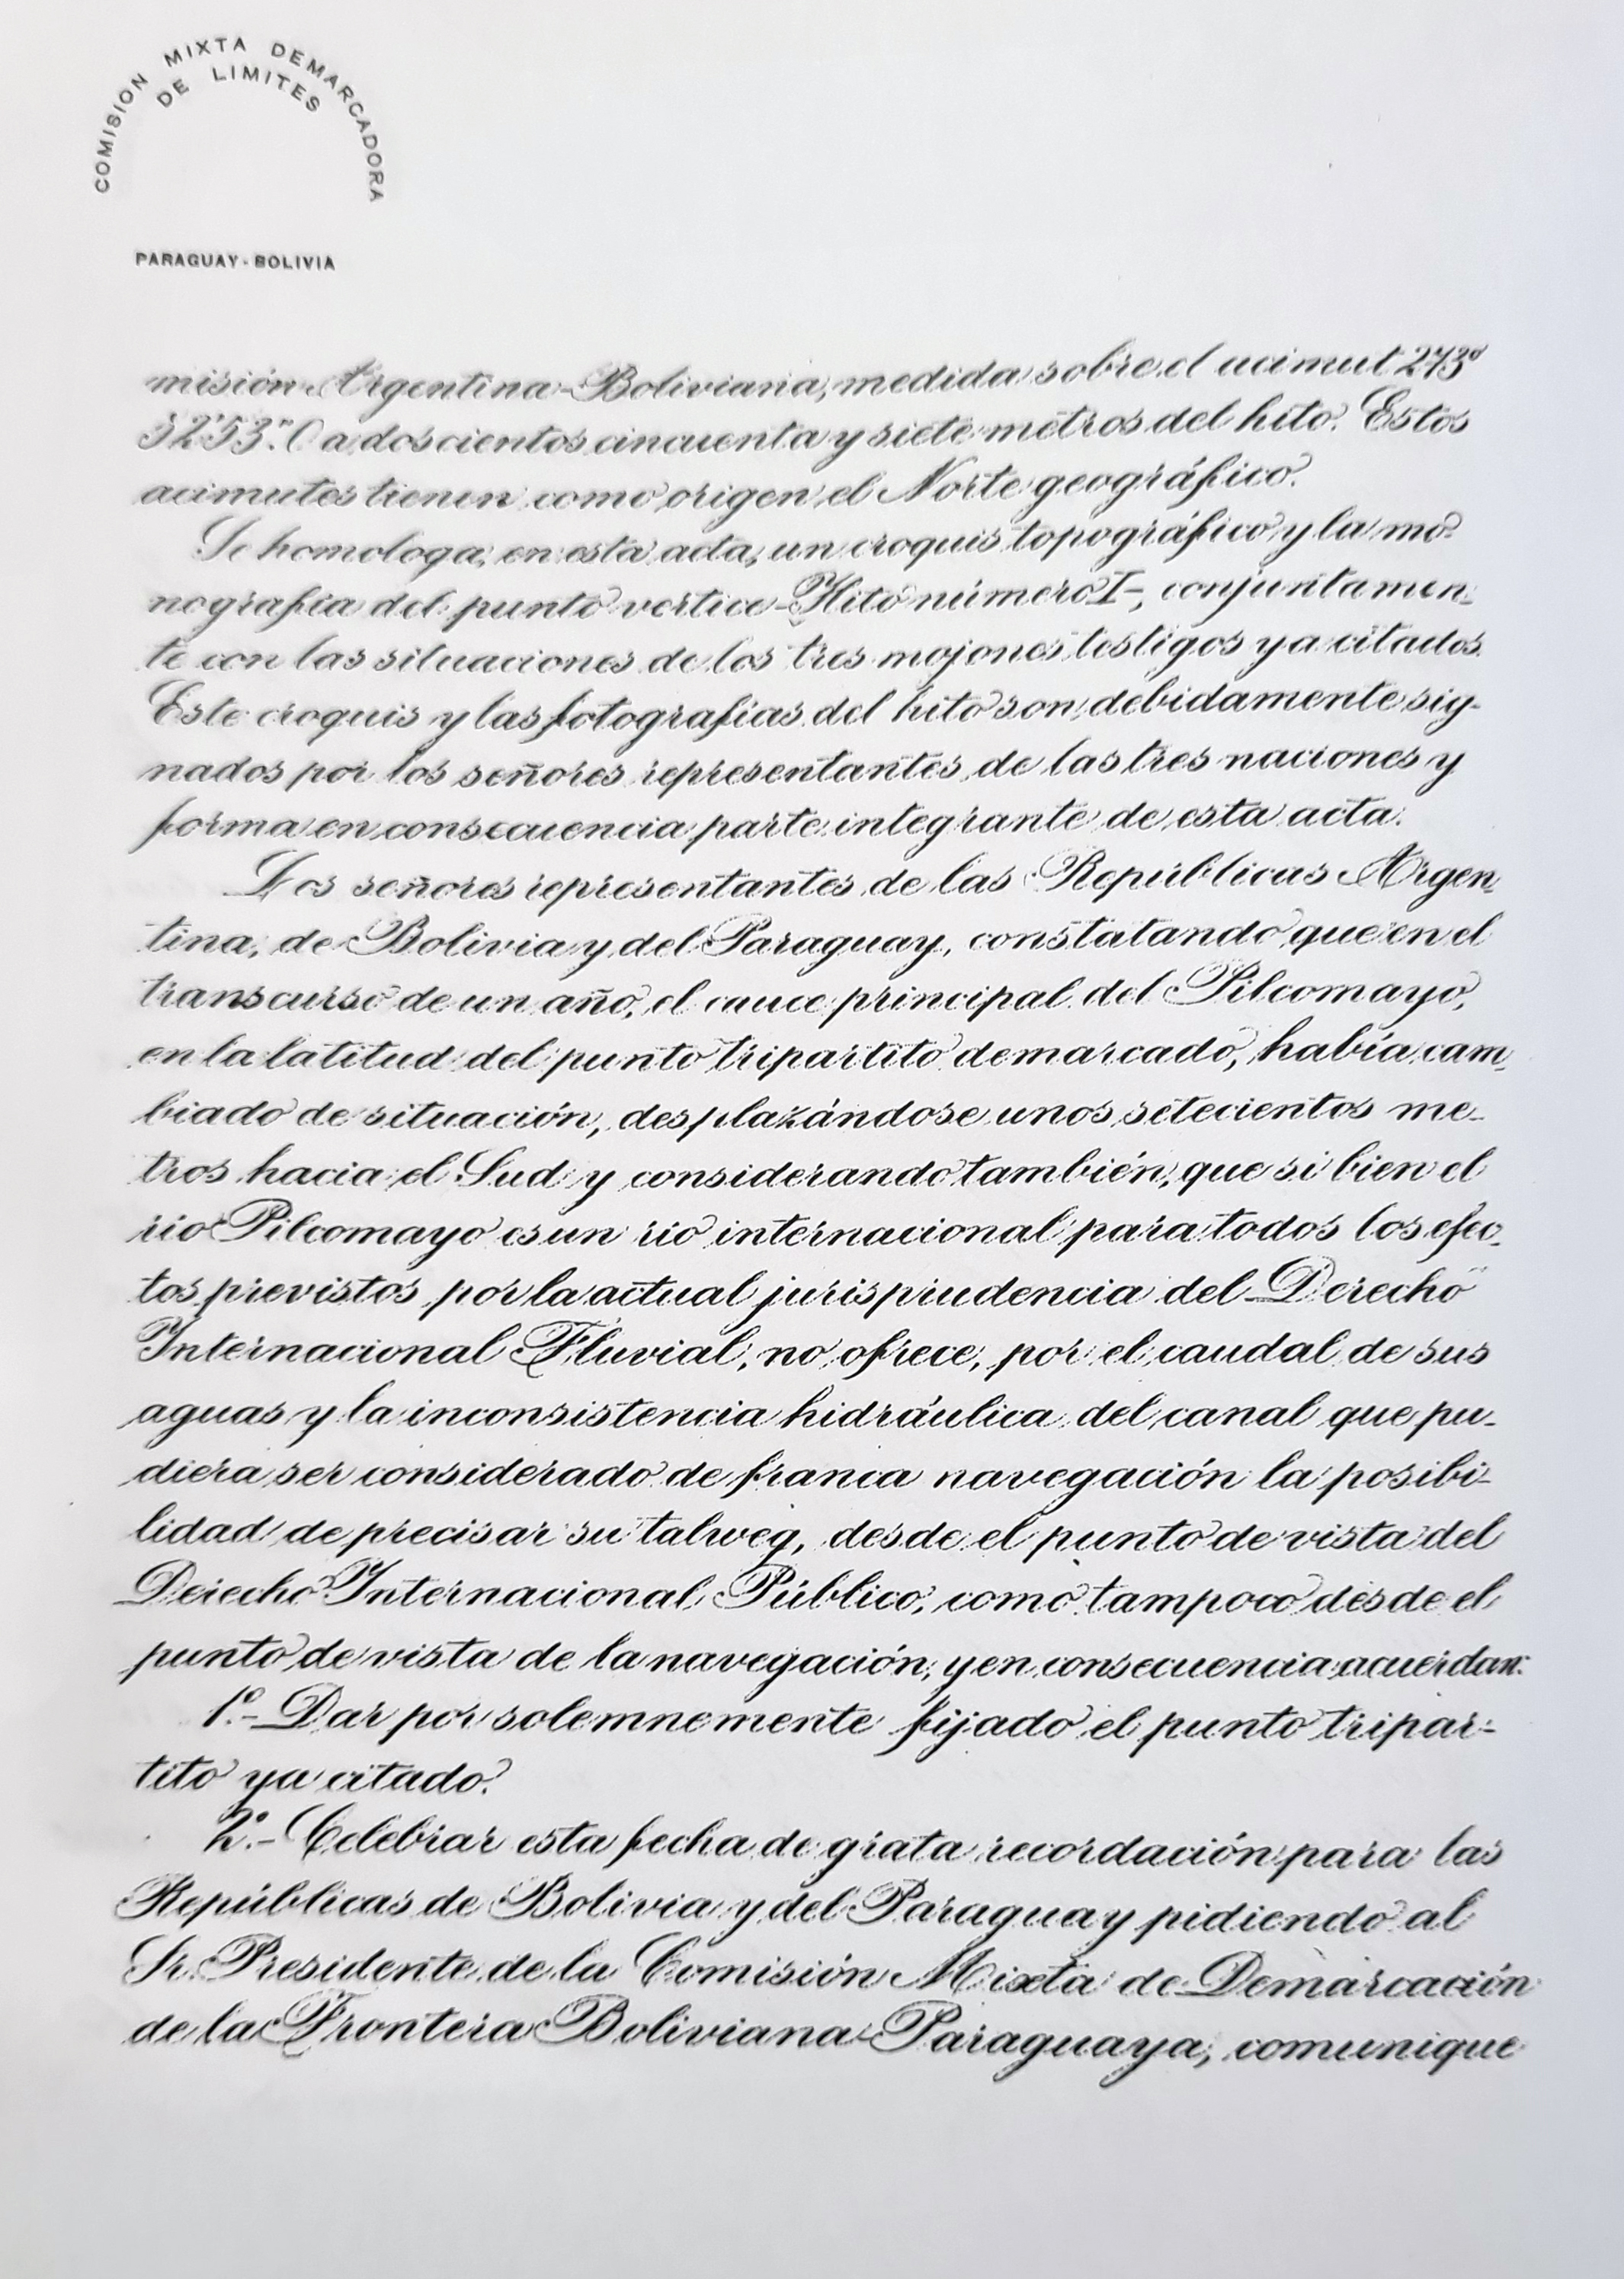 COMISION MIXTA DEMARCADORA
DE LIMITES
PARAGUAY-BOLIVIA
misión Argentina-Boliviana, medida sobre el acimut 273º
32'53".0 a doscientos cincuenta y siete metros del hito. Estos
acimutes tienen como origen el Norte geográfico.
Se homologa, en esta acta, un croquis topográfico y la mo-
nografia del punto vertice-Hito número I-, conjuntamen-
te con las situaciones de los tres mojones testigos ya citados.
Este croquis y las fotografías del hito son debidamente sig-
nados por los señores representantes de las tres naciones y
forma en consecuencia parte integrante de esta acta.
Los señores representantes de las Repúblicas Argen-
tina, de Bolivia y del Paraguay, constatando que en el
transcurso de un año, el cauce principal del Pilcomayo,
en la latitud del punto tripartito demarcado, había cam-
biado de situación, desplazándose unos setecientos me-
tros hacia el Sud y considerando también, que si bien el
río Pilcomayo es un río internacional para todos los efec-
tos previstos por la actual jurisprudencia del Derecho
Internacional Fluvial, no ofrece, por el caudal de sus
aguas y la inconsistencia hidráulica del canal que pu-
diera ser considerado de franca navegación la posibi-
lidad de precisar su talweg, desde el punto de vista del
Derecho Internacional Público, como tampoco desde el
punto de vista de la navegación, y en consecuencia acuerdan:
1º.- Dar por solemnemente fijado el punto tripar-
tito ya citado.
2º.- Celebrar esta fecha de grata recordación para las
Repúblicas de Bolivia y del Paraguay pidiendo al
Sr. Presidente de la Comisión Mixta de Demarcación
de la Frontera Boliviana-Paraguaya, comunique